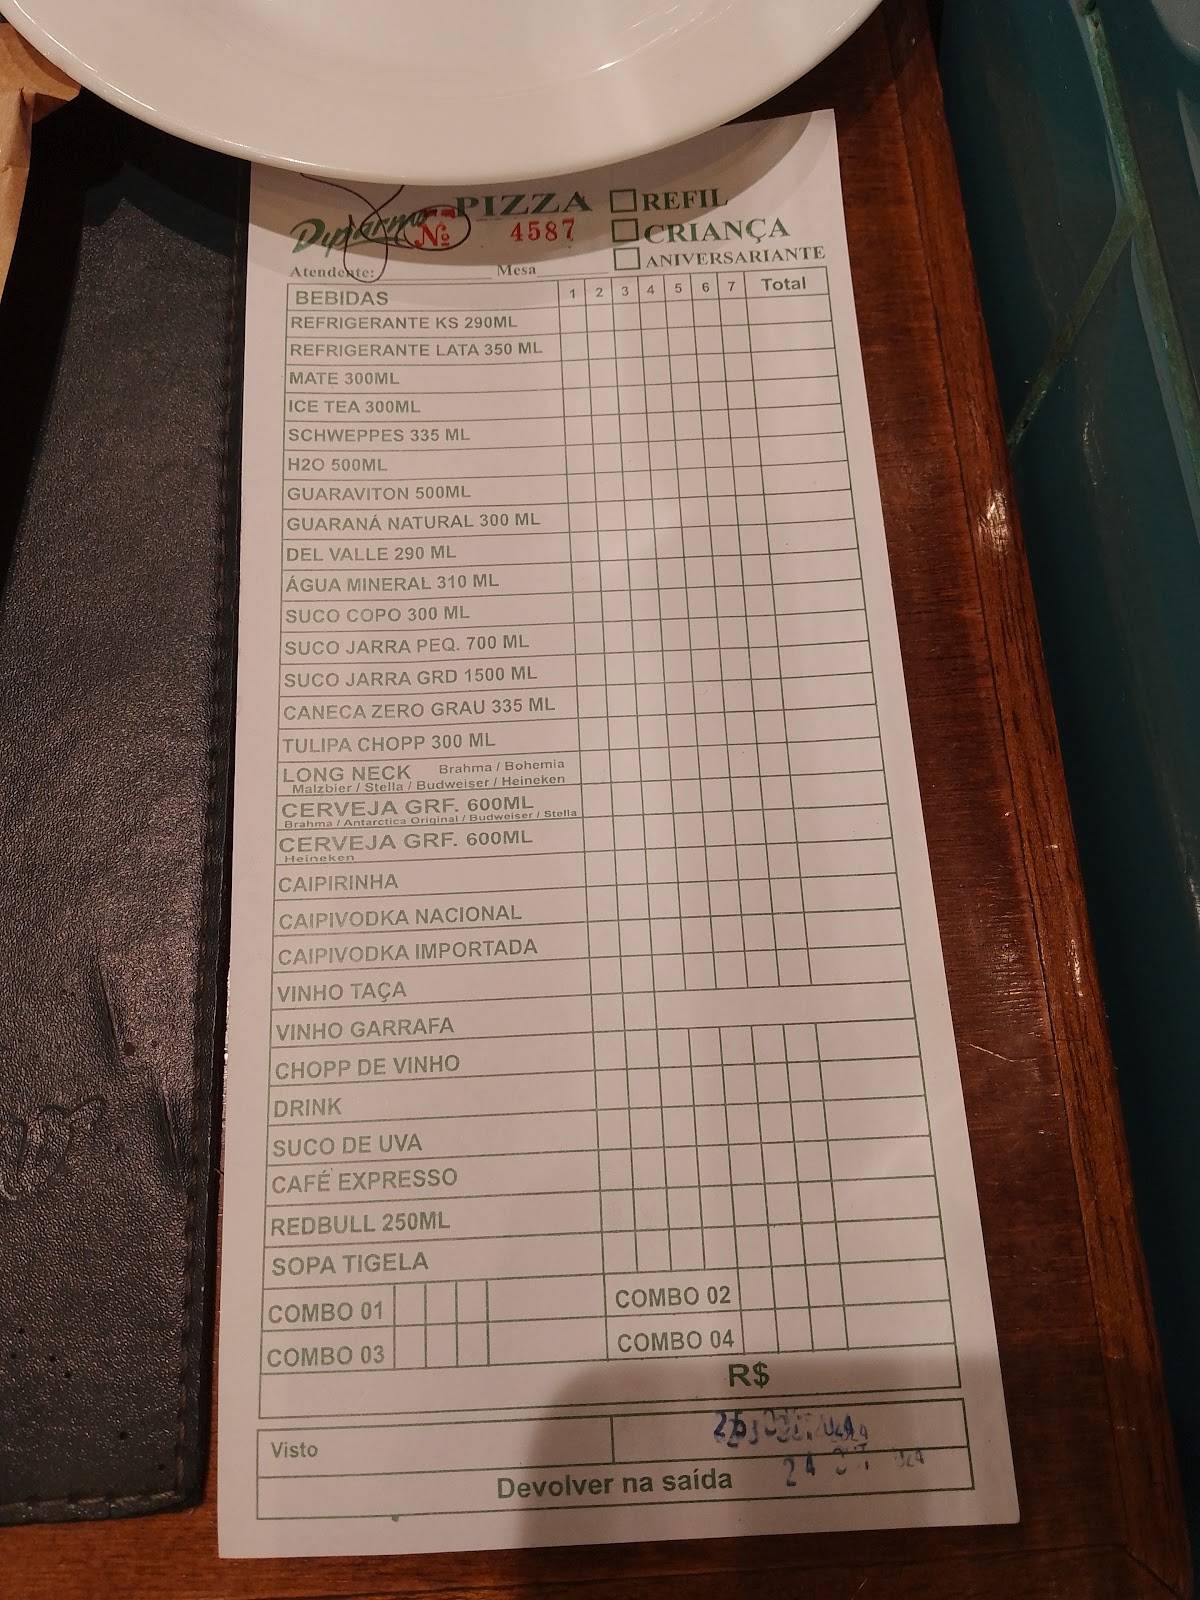 PIZZA
REFIL
Nº 4587
CRIANÇA
ANIVERSARIANTE
Atendente: Mesa
BEBIDAS 1 2 3 4 5 6 7 Total
REFRIGERANTE KS 290ML
REFRIGERANTE LATA 350 ML
MATE 300ML
ICE TEA 300ML
SCHWEPPES 335 ML
H2O 500ML
GUARAVITON 500ML
GUARANÁ NATURAL 300 ML
DEL VALLE 290 ML
ÁGUA MINERAL 310 ML
SUCO COPO 300 ML
SUCO JARRA PEQ. 700 ML
SUCO JARRA GRD 1500 ML
CANECA ZERO GRAU 335 ML
TULIPA CHOPP 300 ML
LONG NECK Brahma / Bohemia
Malzbier / Stella / Budweiser / Heineken
CERVEJA GRF. 600ML
Brahma / Antarctica Original / Budweiser / Stella
CERVEJA GRF. 600ML
Heineken
CAIPIRINHA
CAIPIVODKA NACIONAL
CAIPIVODKA IMPORTADA
VINHO TAÇA
VINHO GARRAFA
CHOPP DE VINHO
DRINK
SUCO DE UVA
CAFÉ EXPRESSO
REDBULL 250ML
SOPA TIGELA
COMBO 01 COMBO 02
COMBO 03 COMBO 04
R$
Visto
Devolver na saída 24